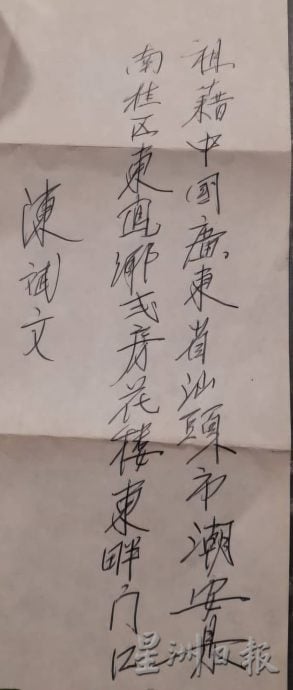 祖藉中國廣東省汕頭市潮安县
南桂区東鳯鄉弍房花樓東畔门口
陳補文
星洲日報